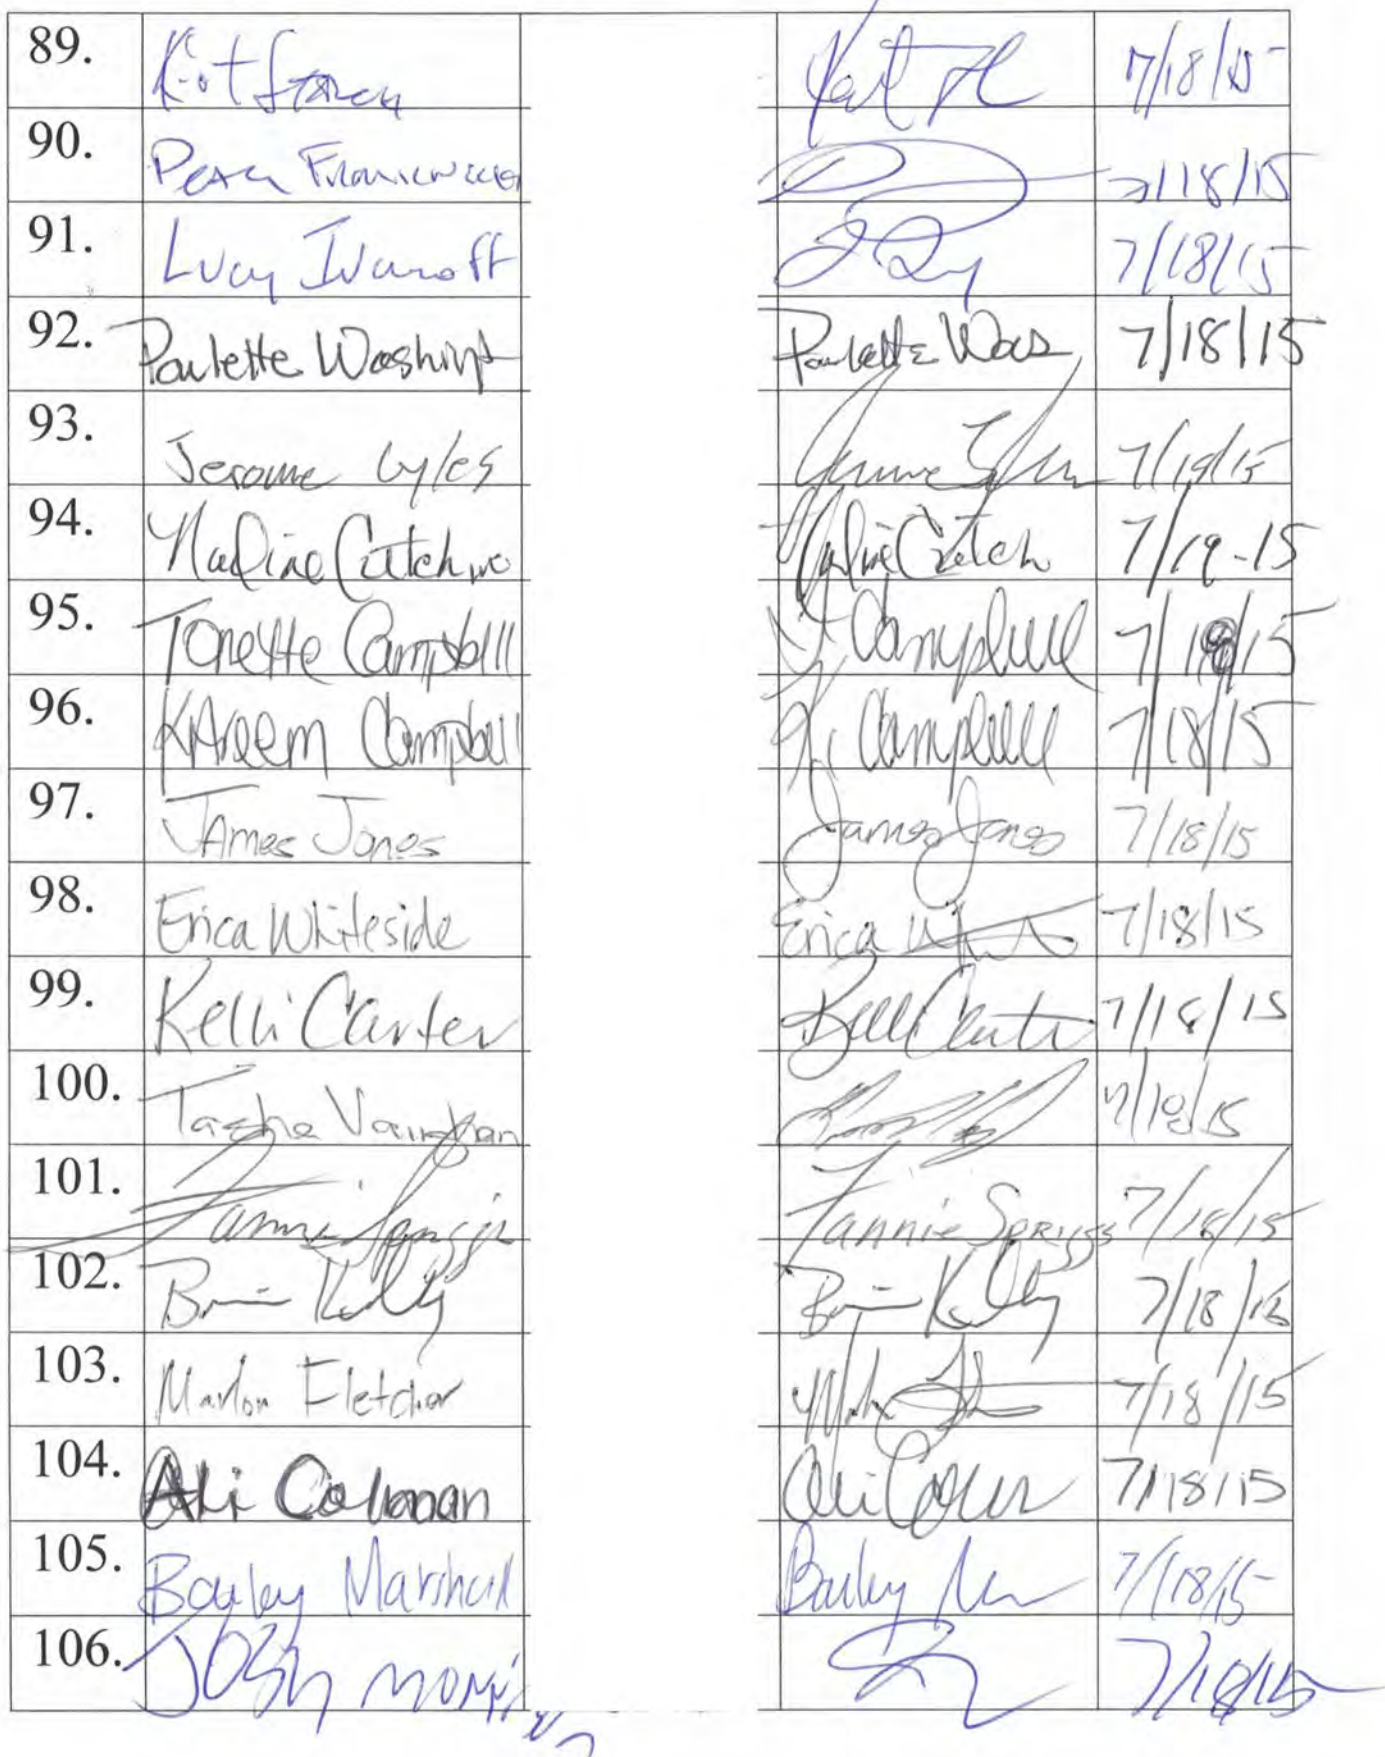 89. Kat 7/18/15
90. 7/18/15
91. Lucy Ivanoff 7/18/15
92. Paulette Washingt Paulette Was 7/18/15
93. Jerome Lyles 7/19/15
94. Nadine Cutch 7/19-15
95. Tonette Campbell T Campbell 7/19/15
96. KAreem Campbell K. Campbell 7/18/15
97. JAmes Jones James Jones 7/18/15
98. Erica Whiteside Erica 7/18/15
99. Kelli Carter 7/18/15
100. Tasha Vaughan 7/18/15
101. Fannie Spriggs Fannie Spriggs 7/18/15
102. Brian Kelly Brian Kelly 7/18/15
103. Marlon Fletcher 7/18/15
104. Ali Colman Ali 7/18/15
105. Bailey Marshall Bailey 7/18/15
106. Josh Morris 7/18/15